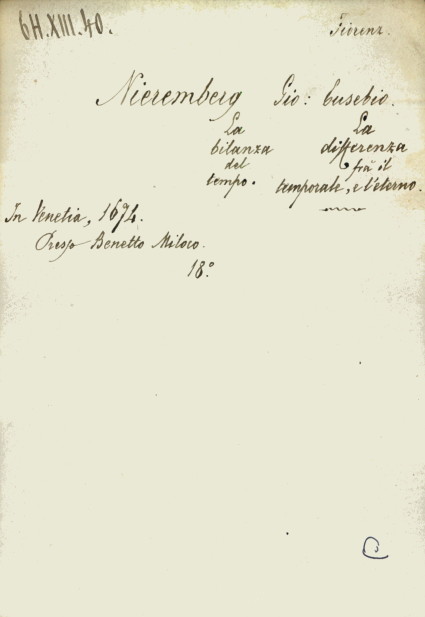 6H.XIII.40.
Nieremberg Gio: Eusebio.
La bilanza del tempo.
La differenza frà il temporale, e l'eterno.
In Venetia, 1674.
Presso Benetto Miloco.
18.°